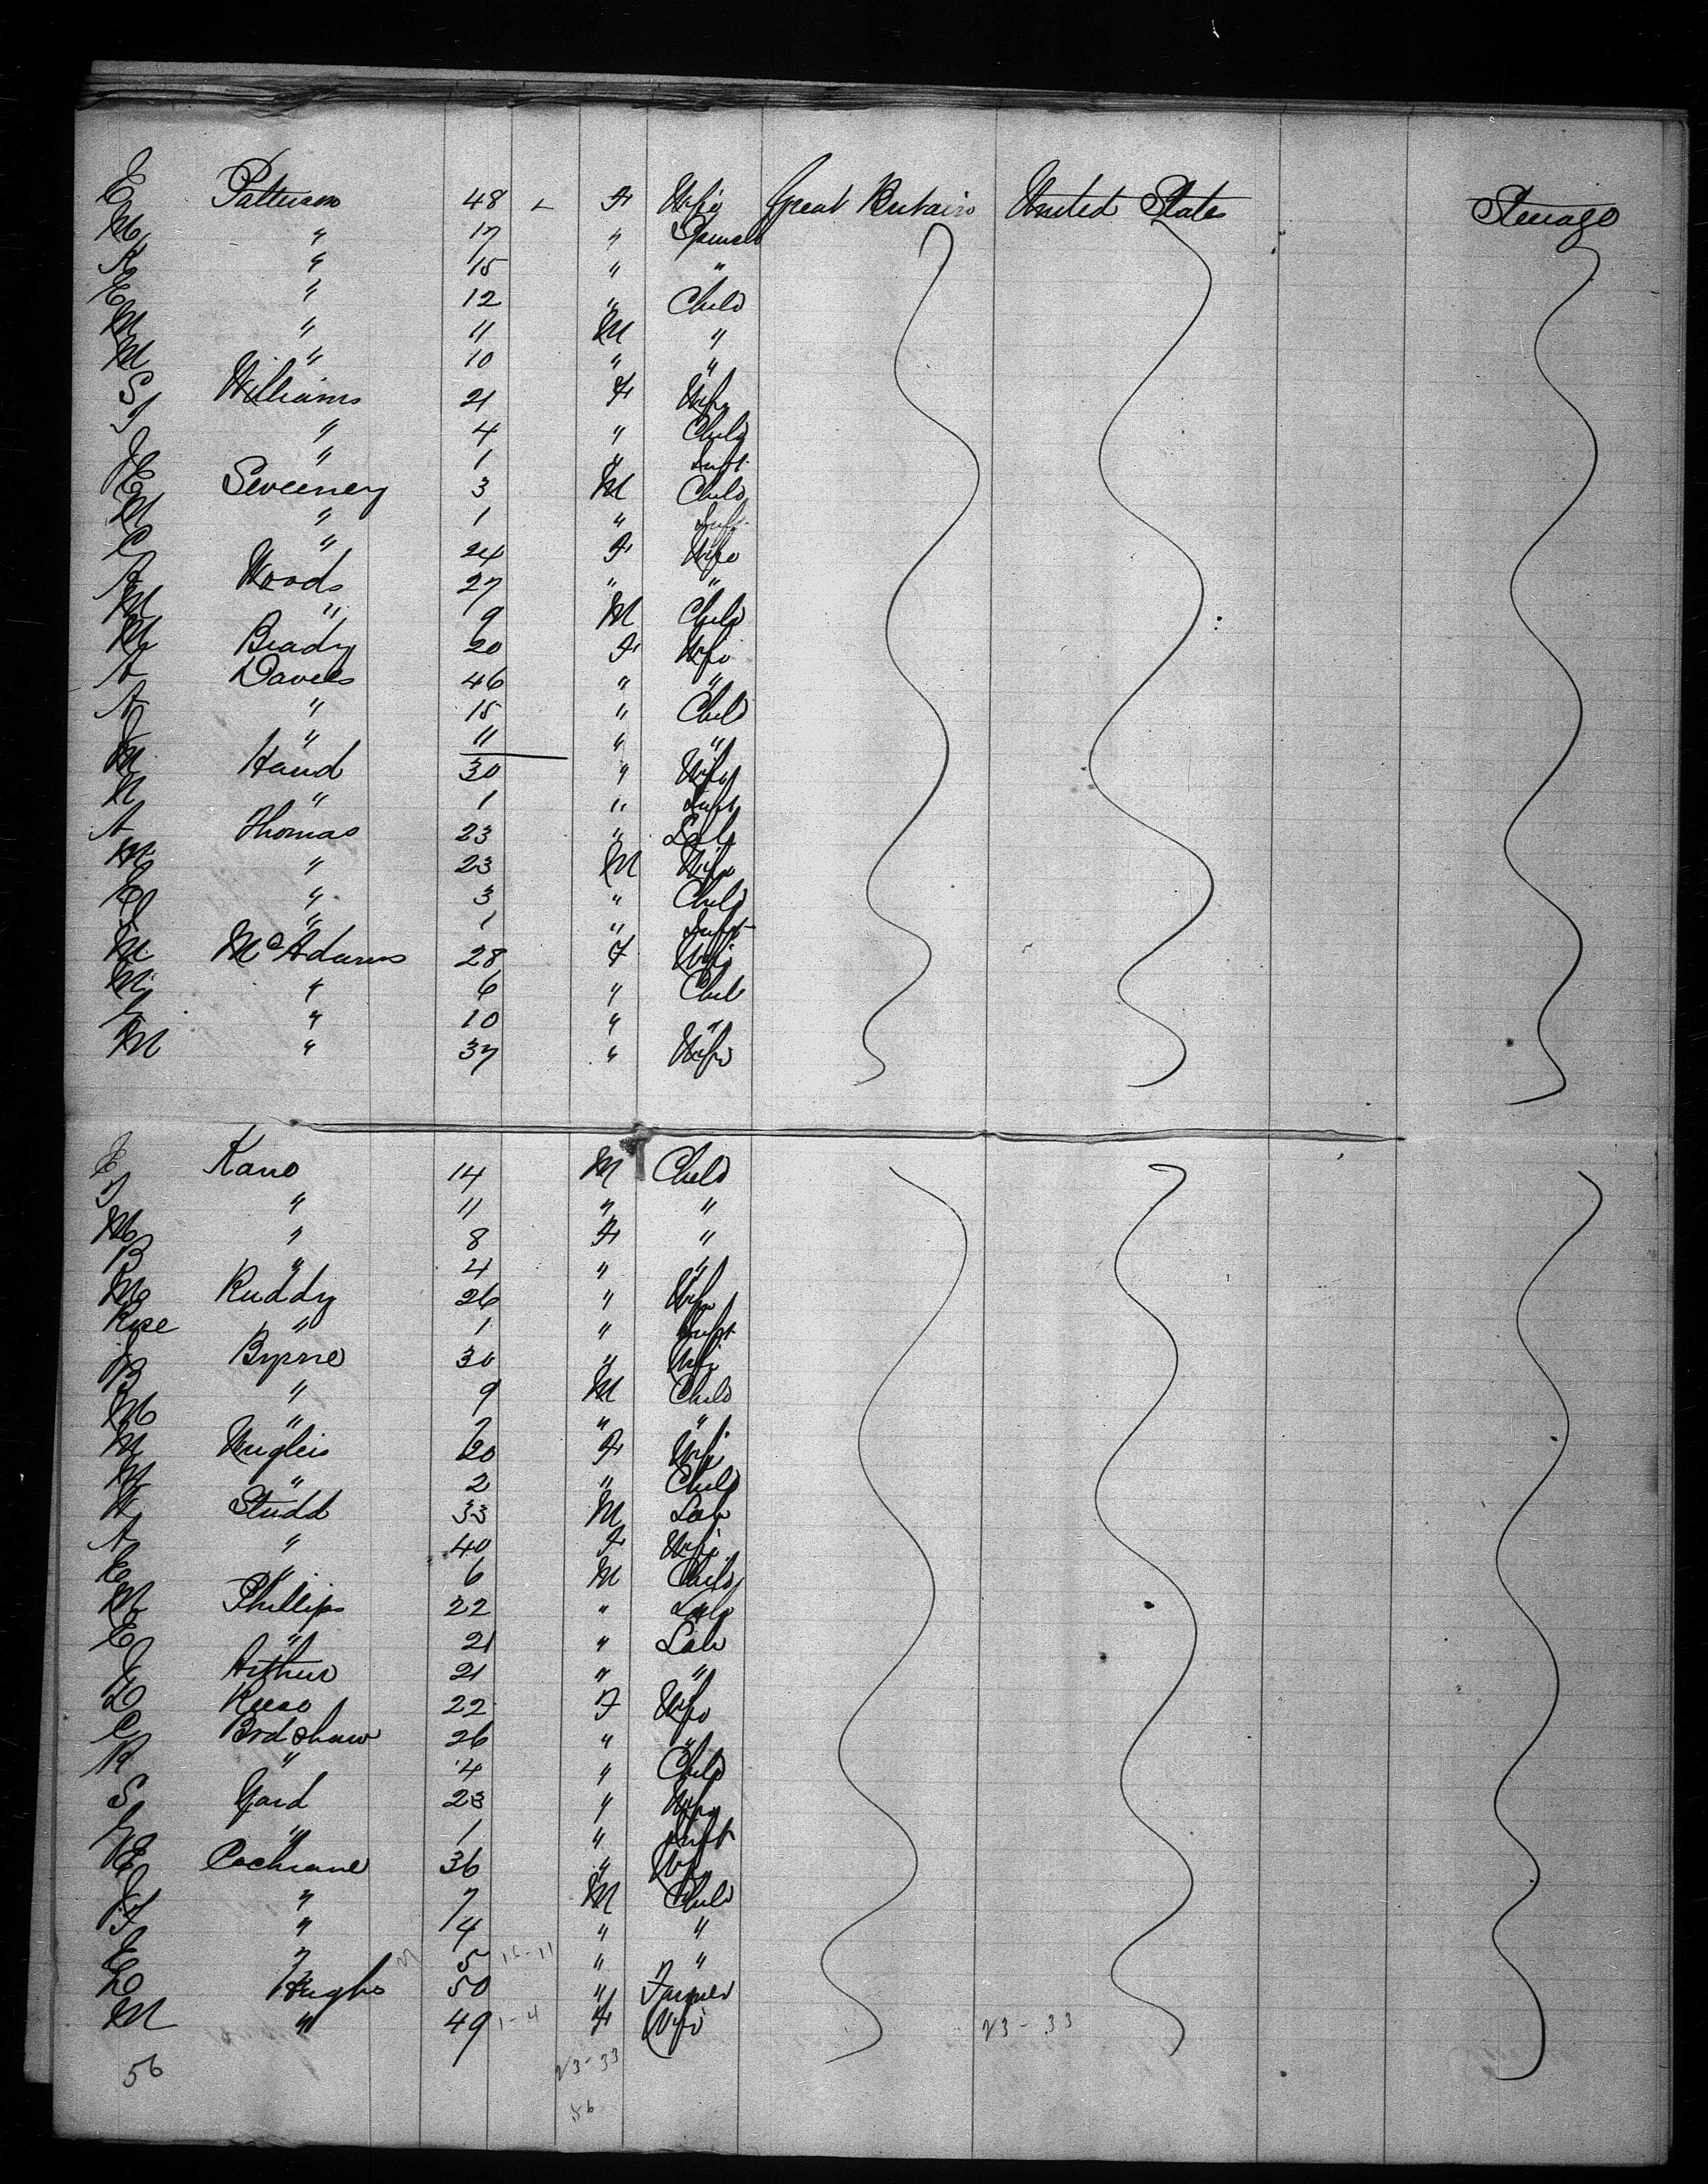 E Patterson 48 - F Wife Great Britain United States Steerage
M " 17 " Spinster
K " 15 " "
E " 12 " Child
M " 11 M "
M " 10 " "
S Williams 21 F Wife
J " 4 " Child
J " 1 " Inft
E Sweeney 3 M Child
M " 1 " Inft
C " 24 F Wife
A Woods 27 " "
M " 9 M Child
M Brady 20 F Wife
A Davies 46 " "
A " 15 " Child
J " 11 " "
M Hand 30 " Wife
N " 1 " Inft
A Thomas 23 " Lab
M " 23 M Wife
E " 3 " Child
" 1 " Inft
M McAdams 28 F Wife
M " 6 " Child
" 10 " "
M " 37 " Wife
E Kane 14 M Child
J " 11 " "
M " 8 F "
B " 4 " "
M Ruddy 26 " Wife
Rose " 1 " Inft
J Byrne 30 " Wife
B " 9 M Child
M " 7 " "
M Hughes 20 F Wife
M " 2 " Child
W Studd 33 M Lab
A " 40 F Wife
E " 6 M Child
M Phillips 22 " Lab
E " 21 " Lab
J Arthur 21 " "
L Reese 22 F Wife
C Bradshaw 26 " "
R " 4 " Child
S Gard 23 " Wife
" 1 " Inft
E Cochrane 36 " Wife
J " 7 M Child
F " 4 " "
E " 5 15-11 " "
E Hughs 50 " Farmer
M " 49 1-4 F Wife 23-33
56 23-33
56